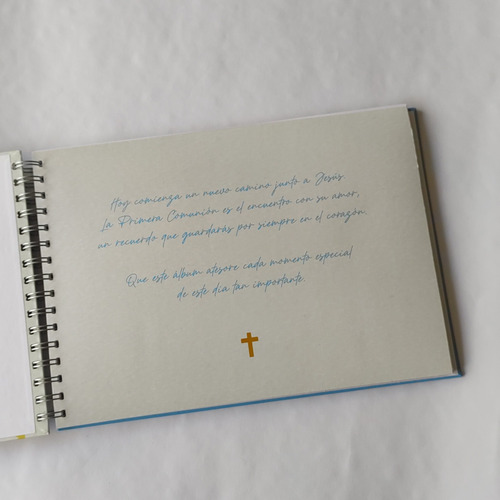 Hoy comienza un nuevo camino junto a Jesús.
La Primera Comunión es el encuentro con su amor,
un recuerdo que guardarás por siempre en el corazón.
Que este álbum atesore cada momento especial
de este día tan importante.